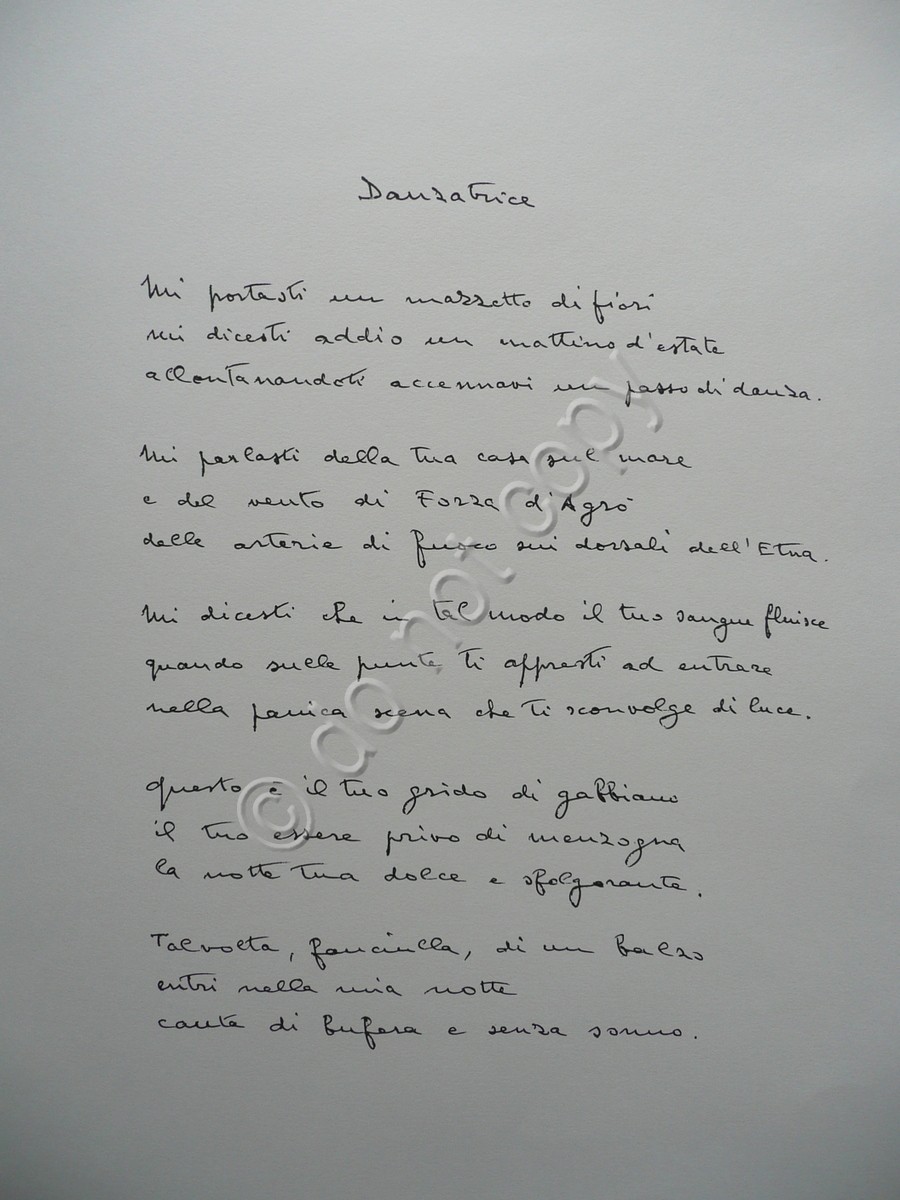 Danzatrice
Mi portasti un mazzetto di fiori
mi dicesti addio un mattino d'estate
allontanandoti accennavi un passo di danza.
Mi parlasti della tua casa sul mare
e del vento di Forza d'Agrò
delle arterie di fuoco sui dorsali dell'Etna.
Mi dicesti che in tal modo il tuo sangue fluisce
quando sulle punte ti appresti ad entrare
nella panica scena che ti sconvolge di luce.
Questo è il tuo grido di gabbiano
il tuo essere privo di menzogna
la notte tua dolce e sfolgorante.
Talvolta, fanciulla, di un balzo
entri nella mia notte
cauta di bufera e senza sonno.
© do not copy